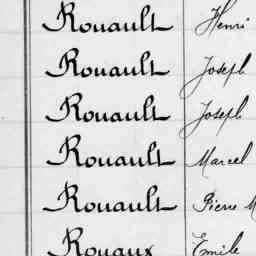 Rouault Henri
Rouault Joseph
Rouault Joseph
Rouault Marcel
Rouault Pierre M
Rouaux Emile